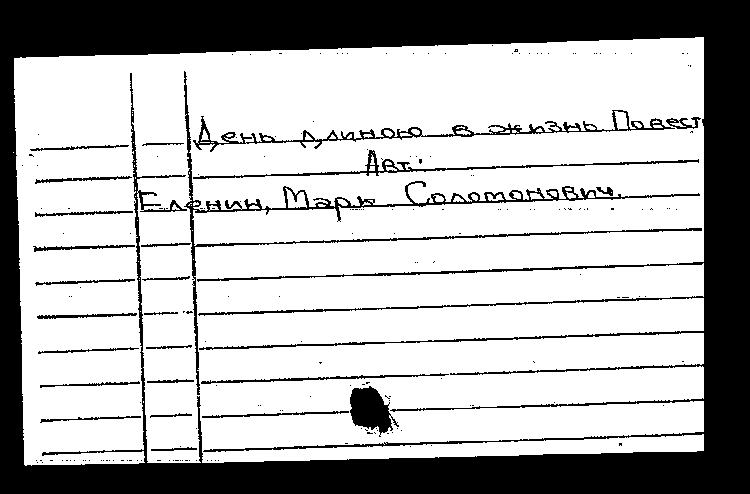 День длиною в жизнь Повест
Авт.:
Еленин, Марк Соломонович.